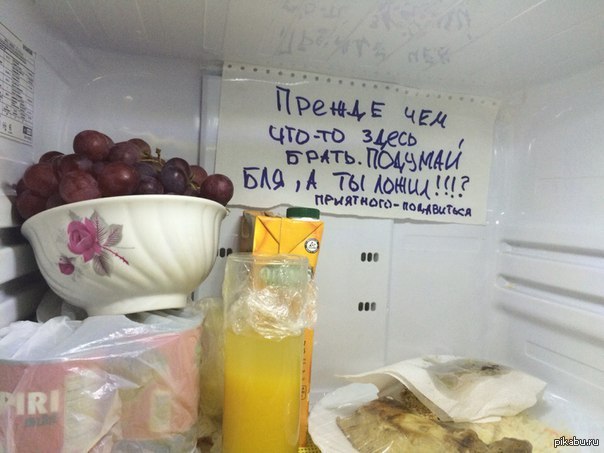 Прежде чем
что-то здесь,
брать. Подумай
Бля, а ты ложил!!!?
приятного-подавиться
PIRI
pikabu.ru